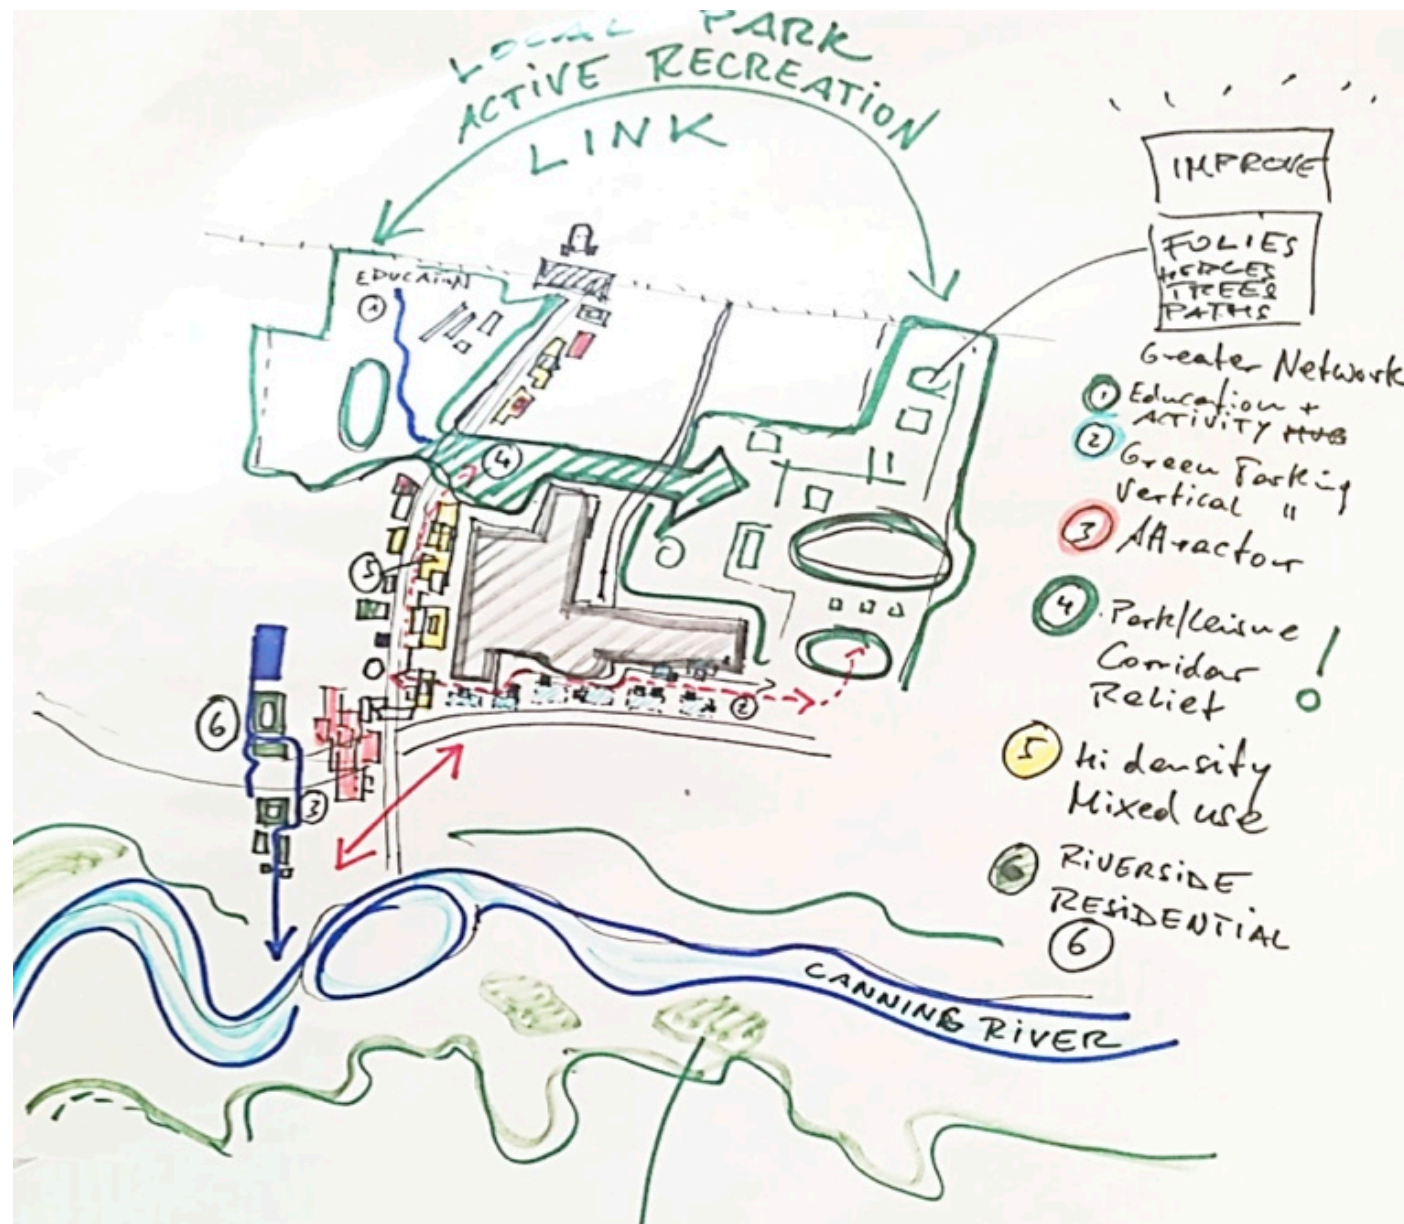 LOCAL PARK
ACTIVE RECREATION
LINK
IMPROVE
FOLIES
HEDGES
TREES
PATHS
EDUCATION
1
4
5
6
3
2
Greater Network
1 Education +
ACTIVITY HUB
2 Green Parking
Vertical "
3 Attractor
4 Park/Leisure
Corridor
Relief !
5 Hi density
Mixed use
6 RIVERSIDE
RESIDENTIAL
6
CANNING RIVER